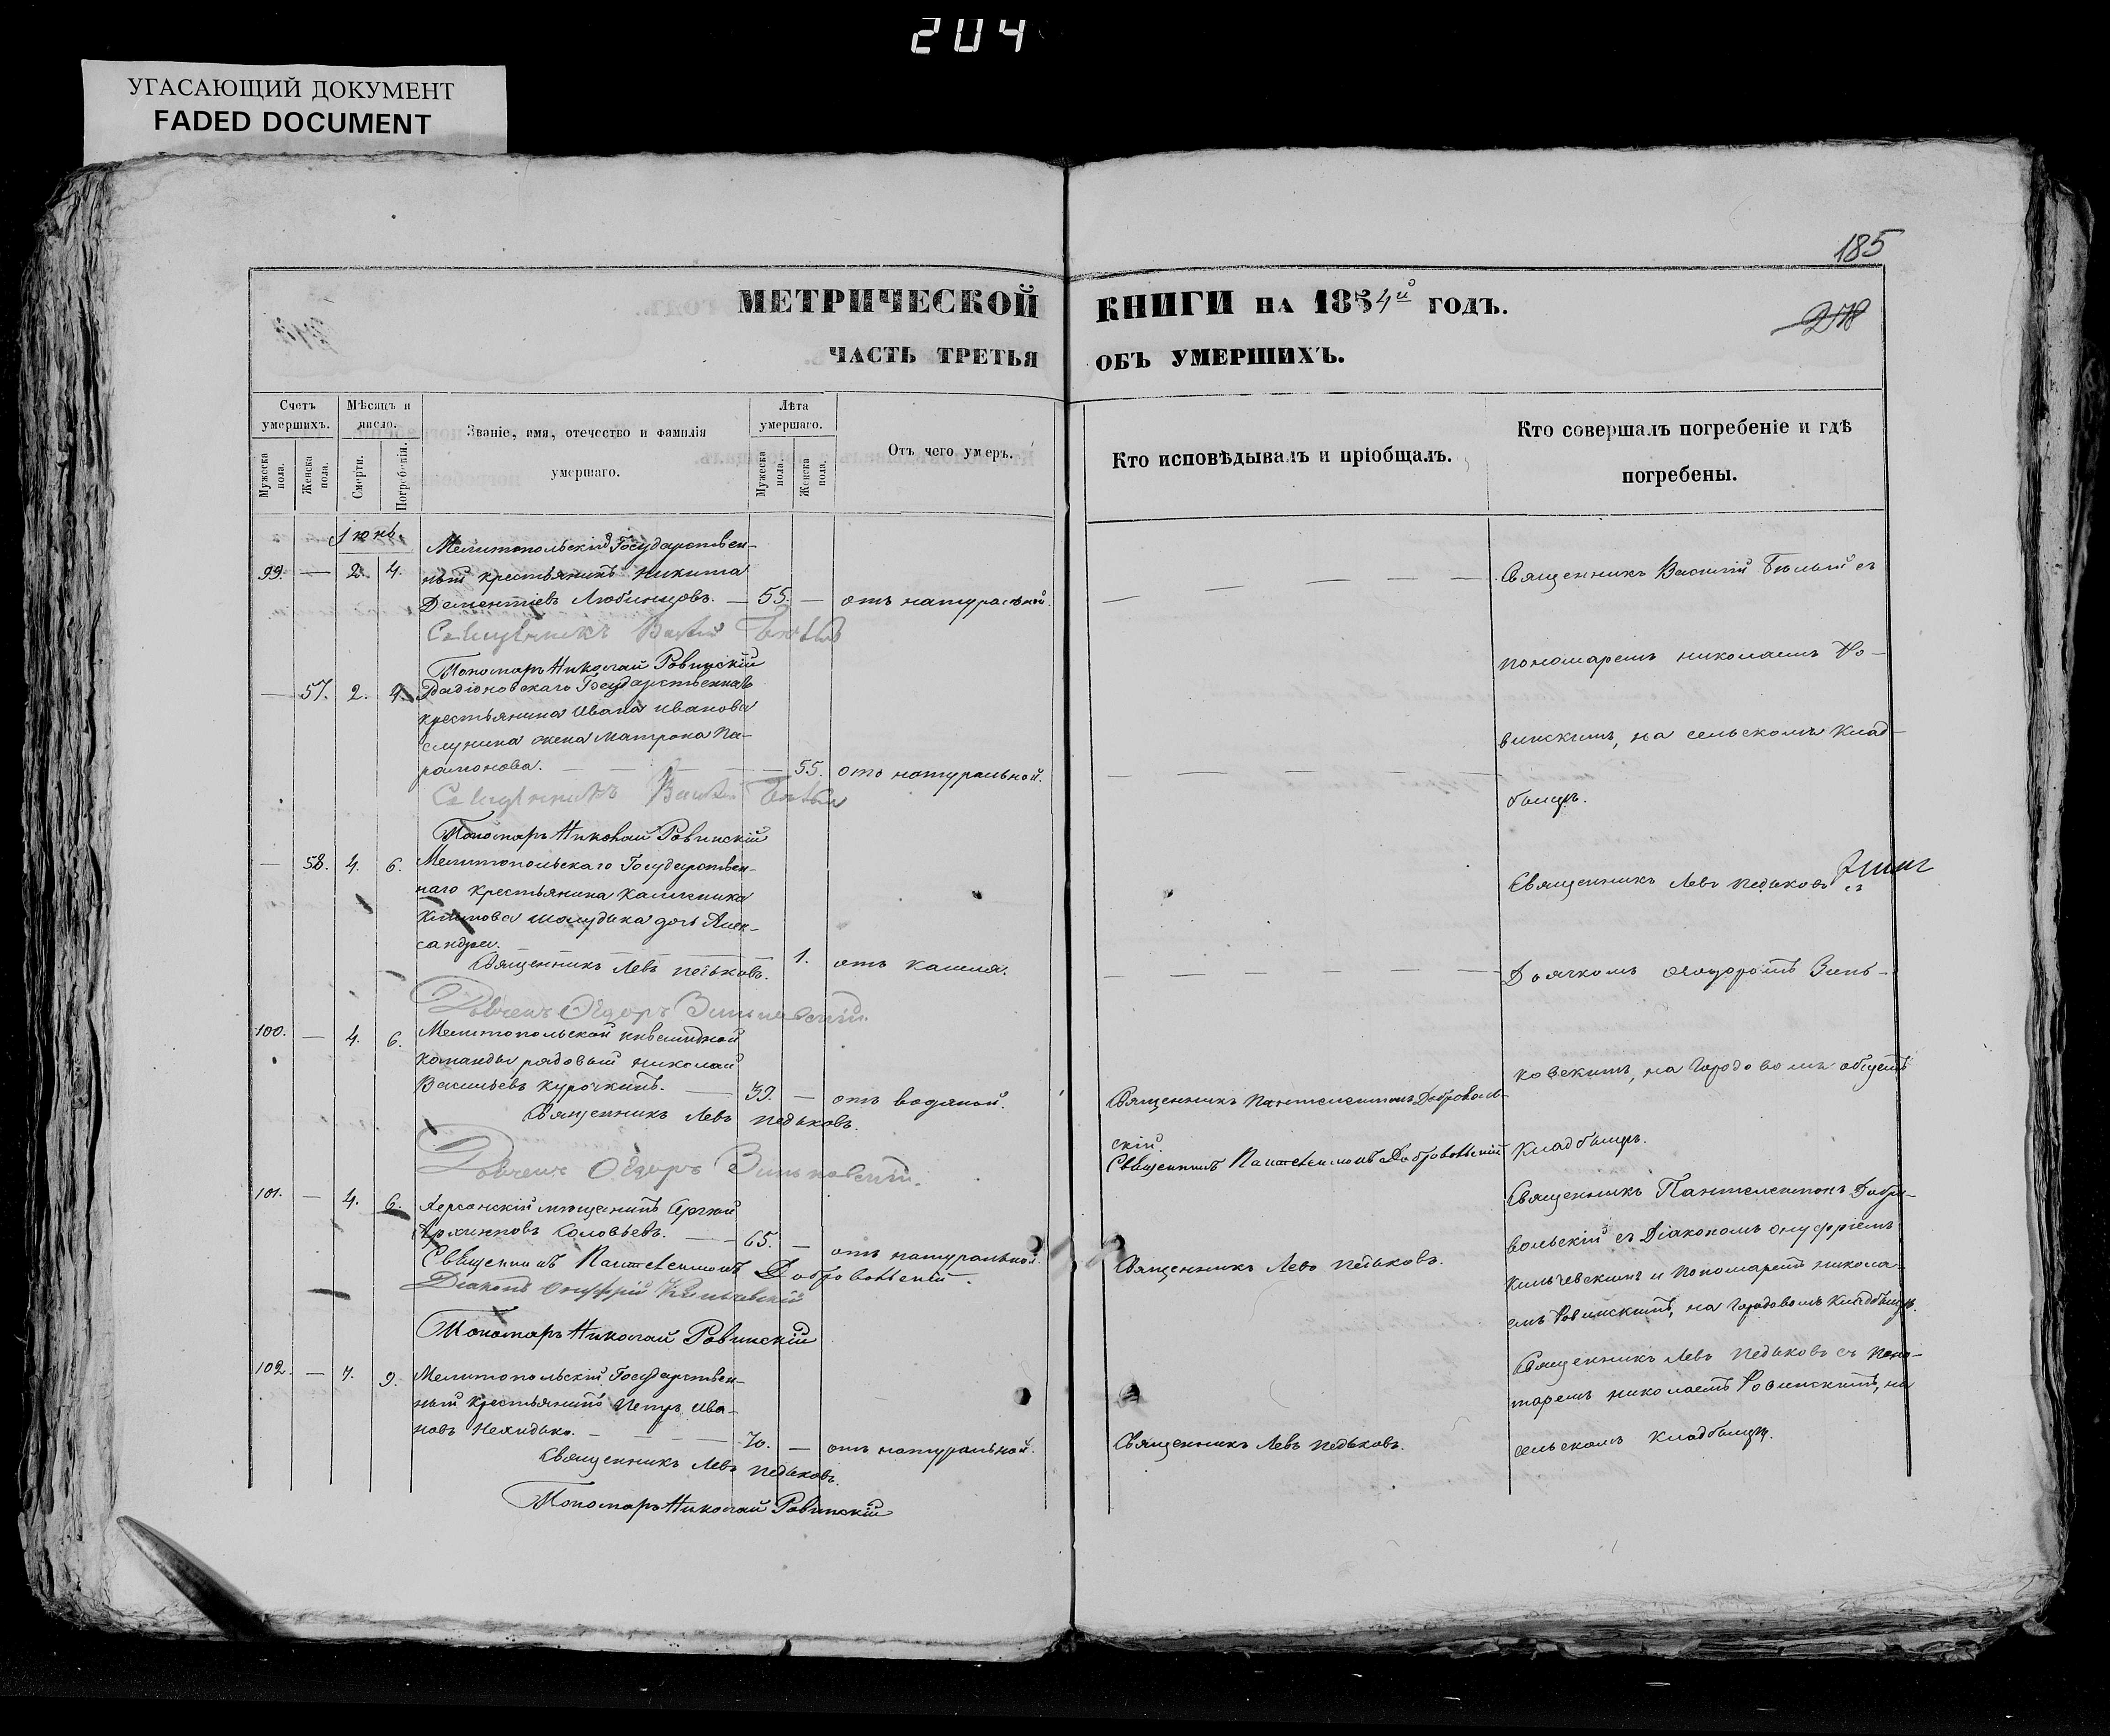 204
УГАСАЮЩИЙ ДОКУМЕНТ
FADED DOCUMENT
185
МЕТРИЧЕСКОЙ КНИГИ НА 1854й ГОДЪ.
ЧАСТЬ ТРЕТЬЯ ОБЪ УМЕРШИХЪ.
Счетъ умершихъ.
Мужеска пола.
Женска пола.
Мѣсяцъ и число.
Смерти.
Погребенія.
Званіе, имя, отечество и фамилія
умершаго.
Лѣта умершаго.
Мужеска пола.
Женска пола.
Отъ чего умеръ.
Кто исповѣдывалъ и пріобщалъ.
Кто совершалъ погребеніе и гдѣ
погребены.
Іюнь.
Мелитопольскій Государствен-
99. — 2. 4. ный крестьянинъ Никита
Дементіевъ Любинцовъ. — 55. — отъ натуральной.
Священникъ Василій Бѣлый
Пономарь Николай Ровинскій
Священникъ Василій Бѣлый съ
пономаремъ Николаемъ Ро-
винскимъ, на сельскомъ клад-
бищѣ.
— 57. 2. 4. Государственнаго
крестьянина Ивана Иванова
жена Матрона Па-
рамонова. — 55. отъ натуральной.
Священникъ Василій Бѣлый
Пономарь Николай Ровинскій
— 58. 4. 6. Мелитопольскаго Государствен-
наго крестьянина Каленика
Климова Шолудька дочь Алек-
сандра. 1. отъ кашля.
Священникъ Левъ Педьковъ.
Дьячекъ Ѳедоръ Зиньковскій.
Священникъ Левъ Педьковъ съ
Дьячкомъ Ѳеодоромъ Зинь-
ковскимъ, на Городовомъ общемъ
кладбищѣ.
100. — 4. 6. Мелитопольской инвалидной
команды рядовый Николай
Васильевъ Курочкинъ. — 39. — отъ водяной.
Священникъ Левъ Педьковъ.
Дьячекъ Ѳедоръ Зиньковскій.
Священникъ Пантелеимонъ Доброволь-
скій.
Священникъ Пантелеимонъ Добровольскій
101. — 4. 6. Херсонскій мѣщанинъ Сергѣй
Архиповъ Соловьевъ. — 65. — отъ натуральной.
Священникъ Пантелеимонъ Добровольскій.
Діаконъ Онуфрій Кильчевскій
Пономарь Николай Ровинскій
Священникъ Левъ Педьковъ.
Священникъ Пантелеимонъ Добро-
вольскій съ Діакономъ Онуфріемъ
Кильчевскимъ и Пономаремъ Никола-
емъ Ровинскимъ, на Городовомъ кладбищѣ.
102. — 7. 9. Мелитопольскій Государствен-
ный крестьянинъ Петръ Ива-
новъ — 70. — отъ натуральной.
Священникъ Левъ Педьковъ.
Пономарь Николай Ровинскій
Священникъ Левъ Педьковъ.
Священникъ Левъ Педьковъ съ Поно-
маремъ Николаемъ Ровинскимъ, на
сельскомъ кладбищѣ.